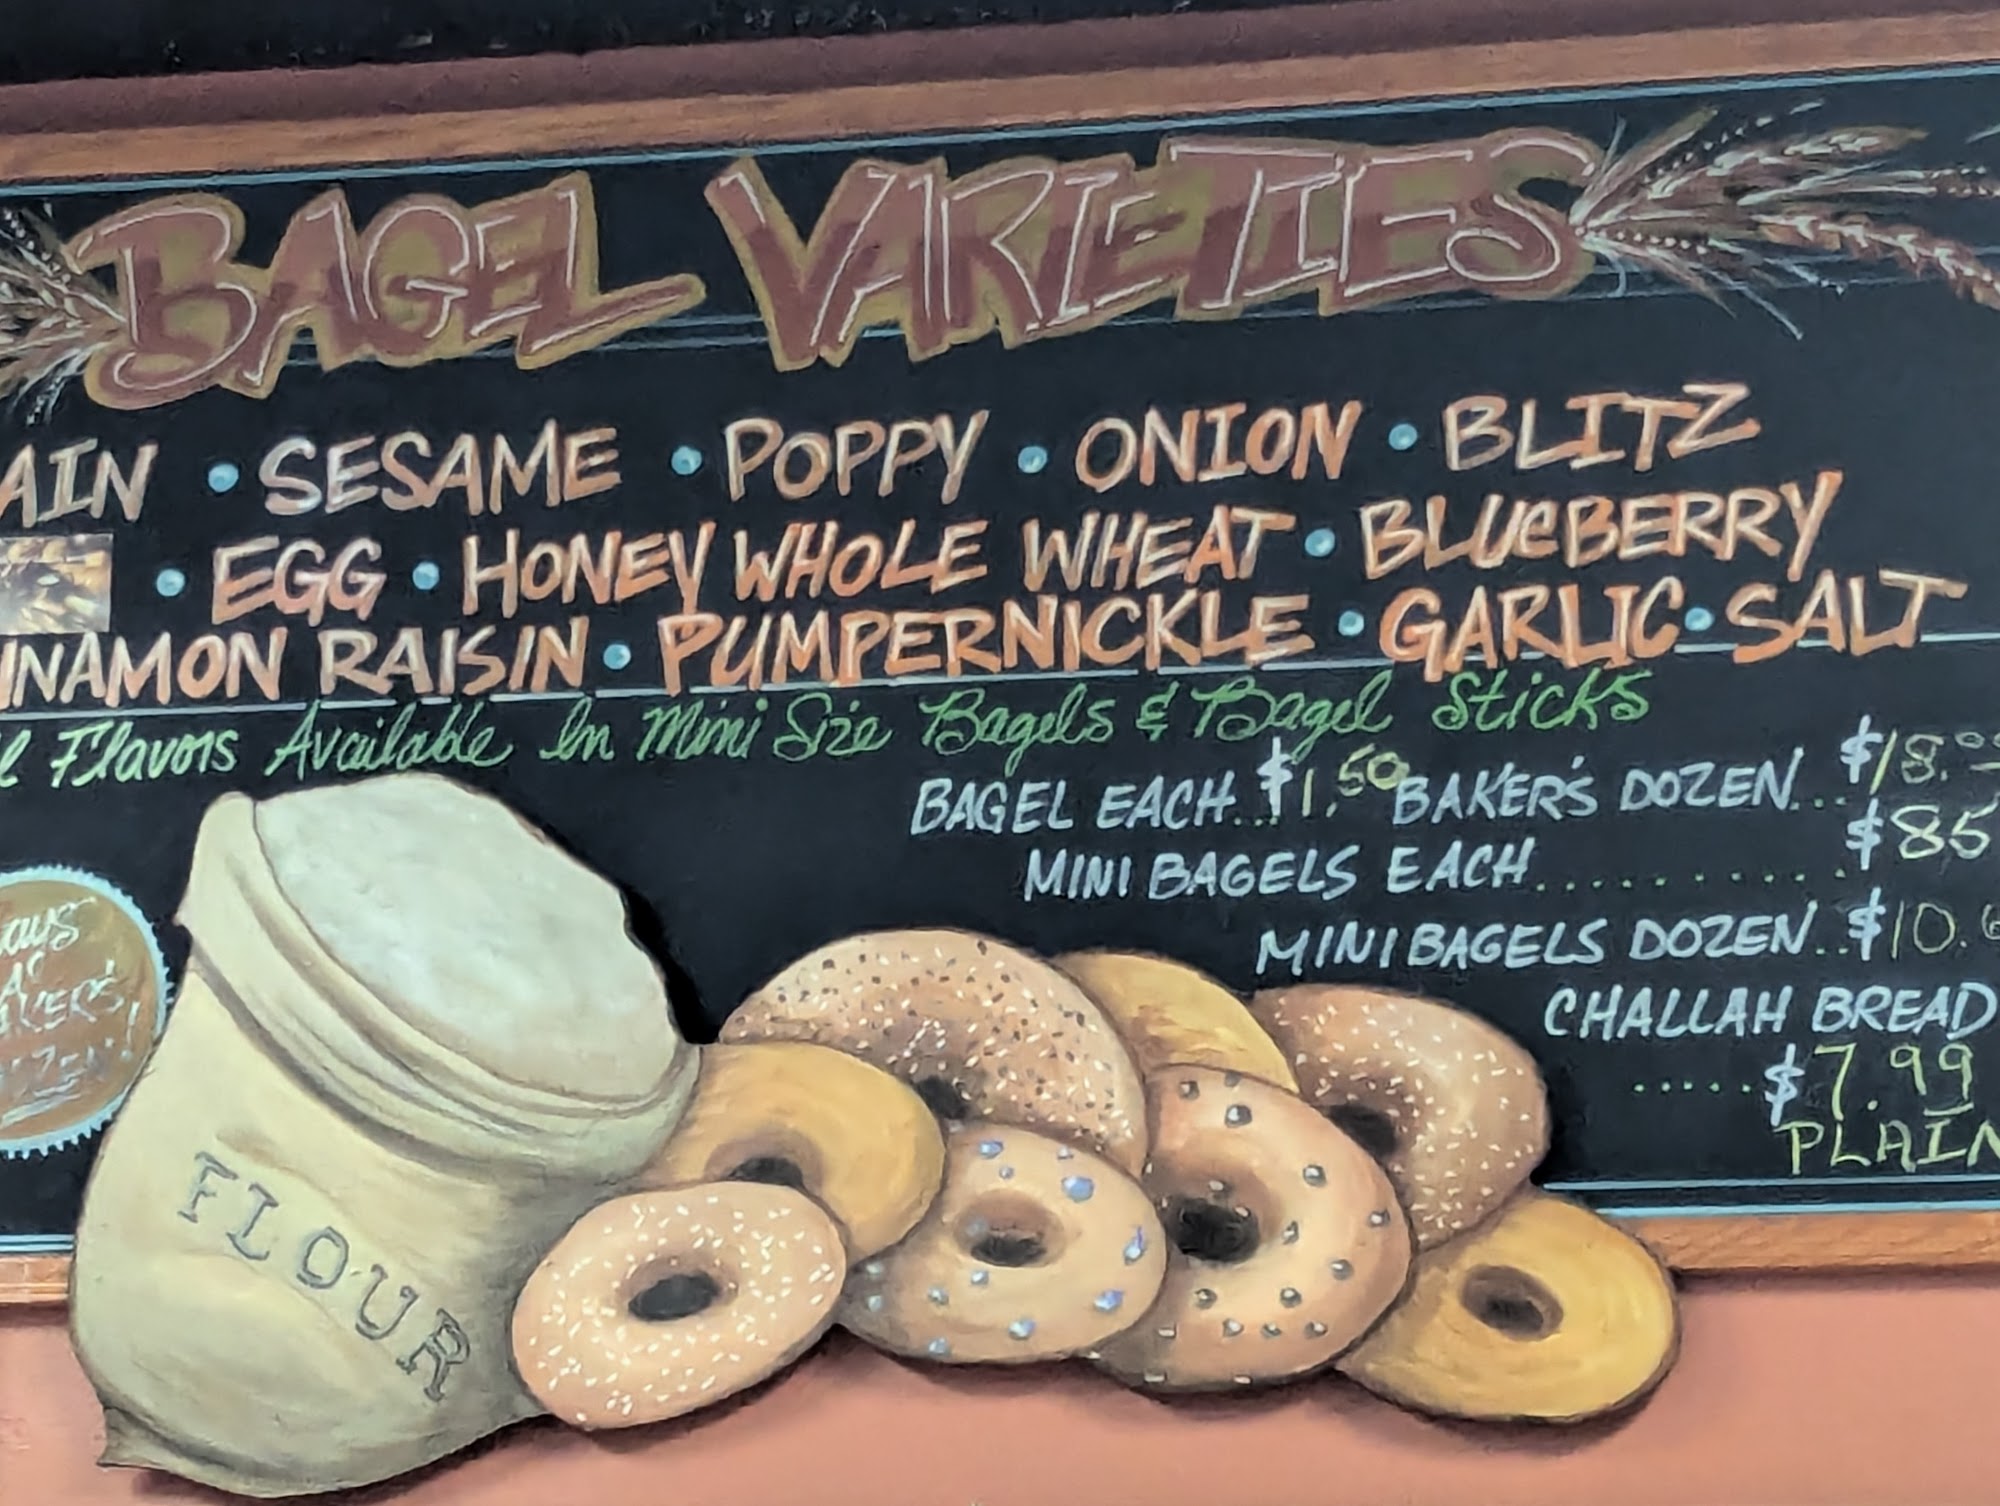 BAGEL VARIETIES
AIN • SESAME • POPPY • ONION • BLITZ
• EGG • HONEY WHOLE WHEAT • BLUEBERRY
NNAMON RAISIN • PUMPERNICKLE • GARLIC • SALT
l Flavors Available In Mini Size Bagels & Bagel Sticks
BAGEL EACH...$1.50 BAKER'S DOZEN...$18.00
MINI BAGELS EACH............$85
MINI BAGELS DOZEN..$10.
CHALLAH BREAD
.....$7.99
PLAIN
ays
A
AKER'S
ZEN!
FLOUR